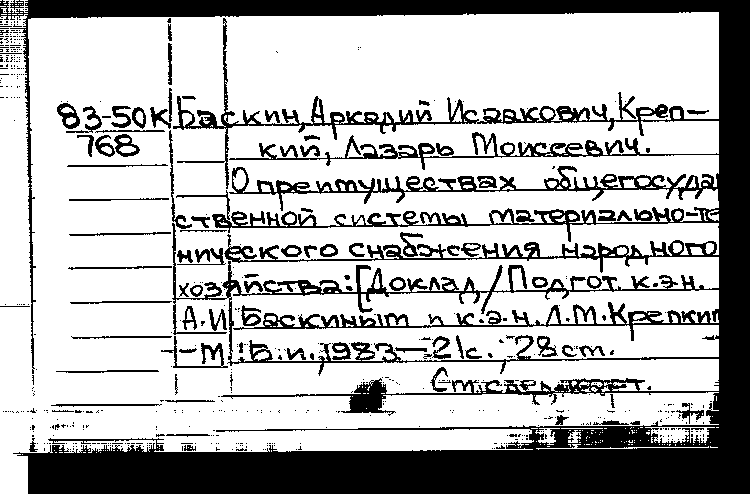 83-50К Баскин, Аркадий Исаакович, Креп-
768 кий, Лазарь Моисеевич.
О преимуществах общегосудар
ственной системы материально-те
нического снабжения народного
хозяйства: [Доклад / Подгот. к.э.н.
А.И. Баскиным и к.э.н. Л.М. Крепким
-М.: Б.и., 1983 — 21с.; 28 cm.
См. след. карт.